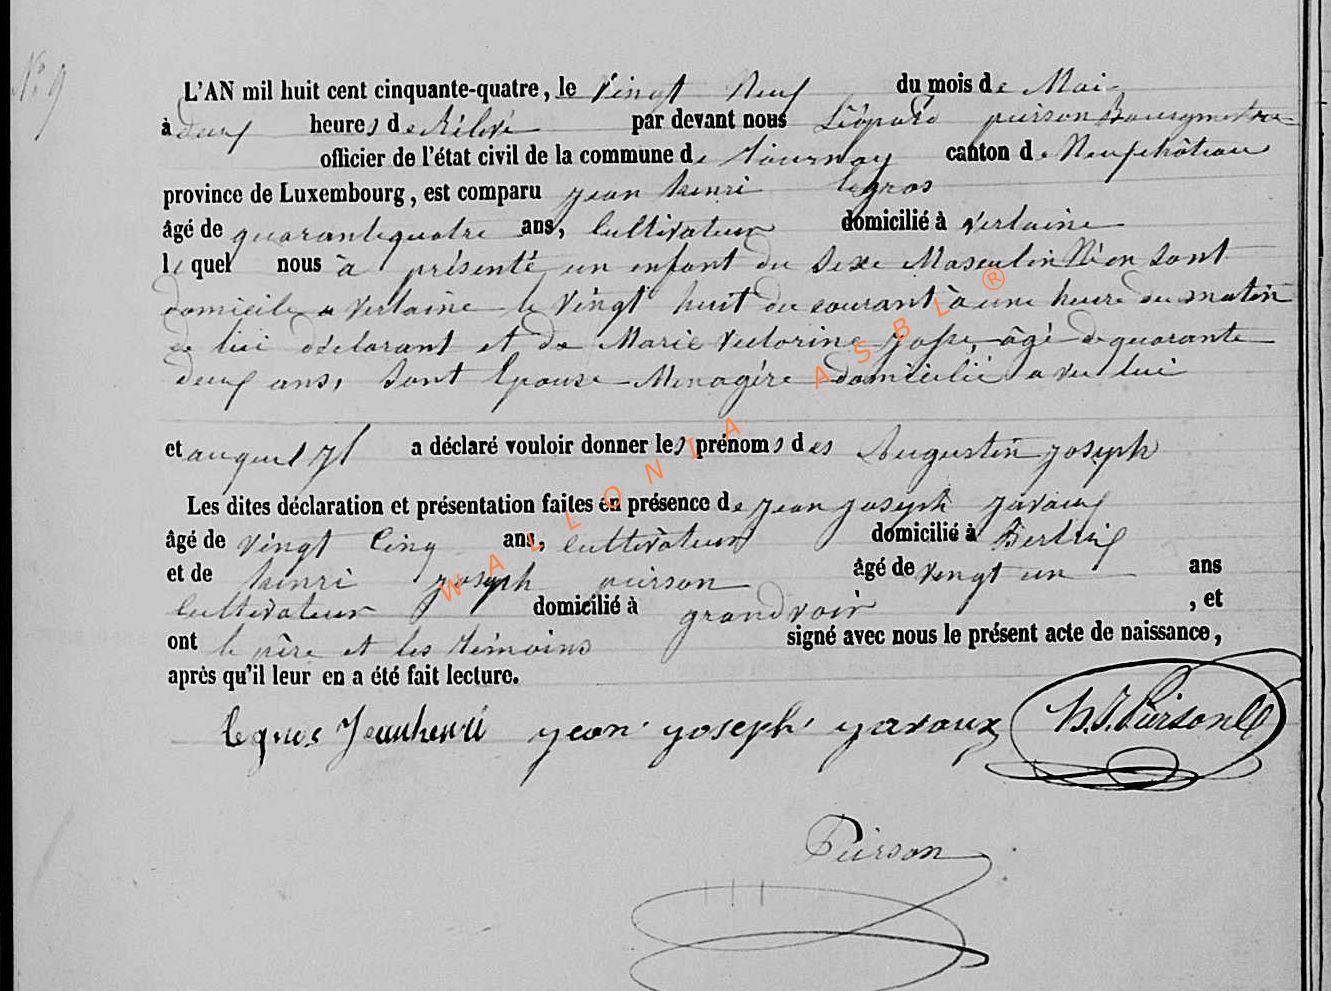 N° 9
L'AN mil huit cent cinquante-quatre, le vingt Neuf du mois de Mai
à deux heures de Rélevé par devant nous Léopold pierson Bourgmestre
officier de l'état civil de la commune de tournay canton de Neufchâteau
province de Luxembourg, est comparu jean henri legros
âgé de quarantequatre ans, Cultivateur domicilié à verlaine
lequel nous à présenté un enfant du Sexe Masculin Né en Sont
domicile a verlaine le vingt huit du courant à une heure du matin
de lui déclarant et de Marie victorine âgé de quarante
deux ans, Sont Epouse Menagére domicilié avec lui
et auquel il a déclaré vouloir donner les prénoms des Augustin joseph
Les dites déclaration et présentation faites en présence de jean joseph javaux
âgé de vingt Cinq ans, cultivateur domicilié à Bertrix
et de henri joseph pierson âgé de vingt un ans
Cultivateur domicilié à grandvoir , et
ont le père et les témoins signé avec nous le présent acte de naissance,
après qu'il leur en a été fait lecture.
legros Jeanhenri jean joseph javaux h.J. Pierson
Pierson
WALLONIA ASBL ®